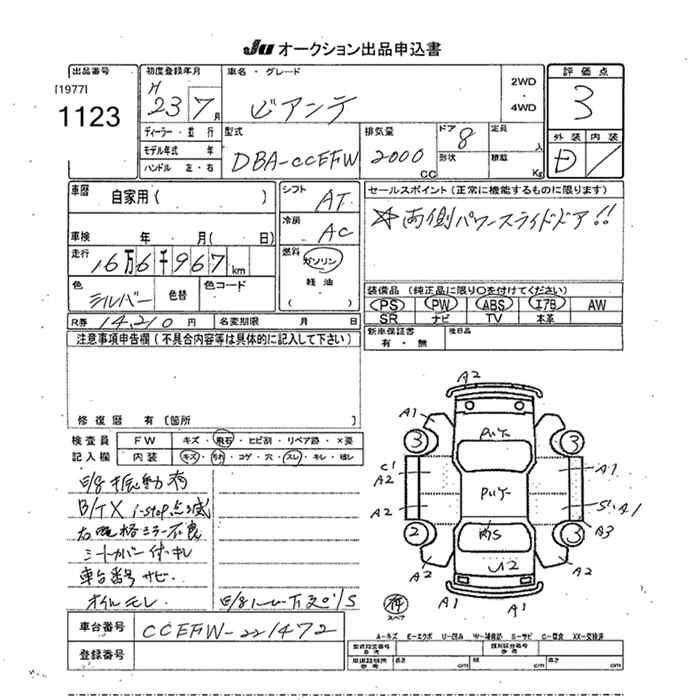 JU オークション出品申込書
出品番号
[1977]
1123
初度登録年月
H 23 7 月
車名・グレード
ビアンテ
2WD
・
4WD
評価点
3
ディーラー・並 行
モデル年式 年
ハンドル 左・右
型式
DBA-CCEFW
排気量
2000
CC
ドア 8
形状
定員 人
積載 Kg
外装 内装
D /
車歴
自家用( )
シフト
AT
セールスポイント(正常に機能するものに限ります)
☆両側パワースライドドア!!
車検 年 月( 日)
冷房
AC
走行
16万6千967km
燃料
ガソリン
軽油
( )
色
シルバー
色替
色コード
装備品(純正品に限り○を付けてください)
PS PW ABS エアB AW
SR ナビ TV 本革
R券 14,210 円
名変期限 月 日
新車保証書
有・無
後日品
注意事項申告欄(不具合内容等は具体的に記入して下さい)
修復歴 有〔箇所 〕
検査員
記入欄
FW キズ・飛石・ヒビ割・リペア跡・×要
内装 キズ・汚れ・コゲ・穴・スレ・キレ・破レ
E/g 振動有
B/TX i-stop点滅
右電格ミラー不良
シートカバー付・キレ
車台番号サビ
オイルモレ
A2
A1
3
3
C1
A2
A2
2
A2
A1
A1
A2
A3
3
A1
S1 A1
U2
スペア
車台番号 CCEFW-221472
登録番号
A-キズ E-エクボ U-凹み W-補修跡 S-サビ C-腐食 XX-交換済
型式指定番号
類別区分番号
長さ cm 幅 cm 高さ cm